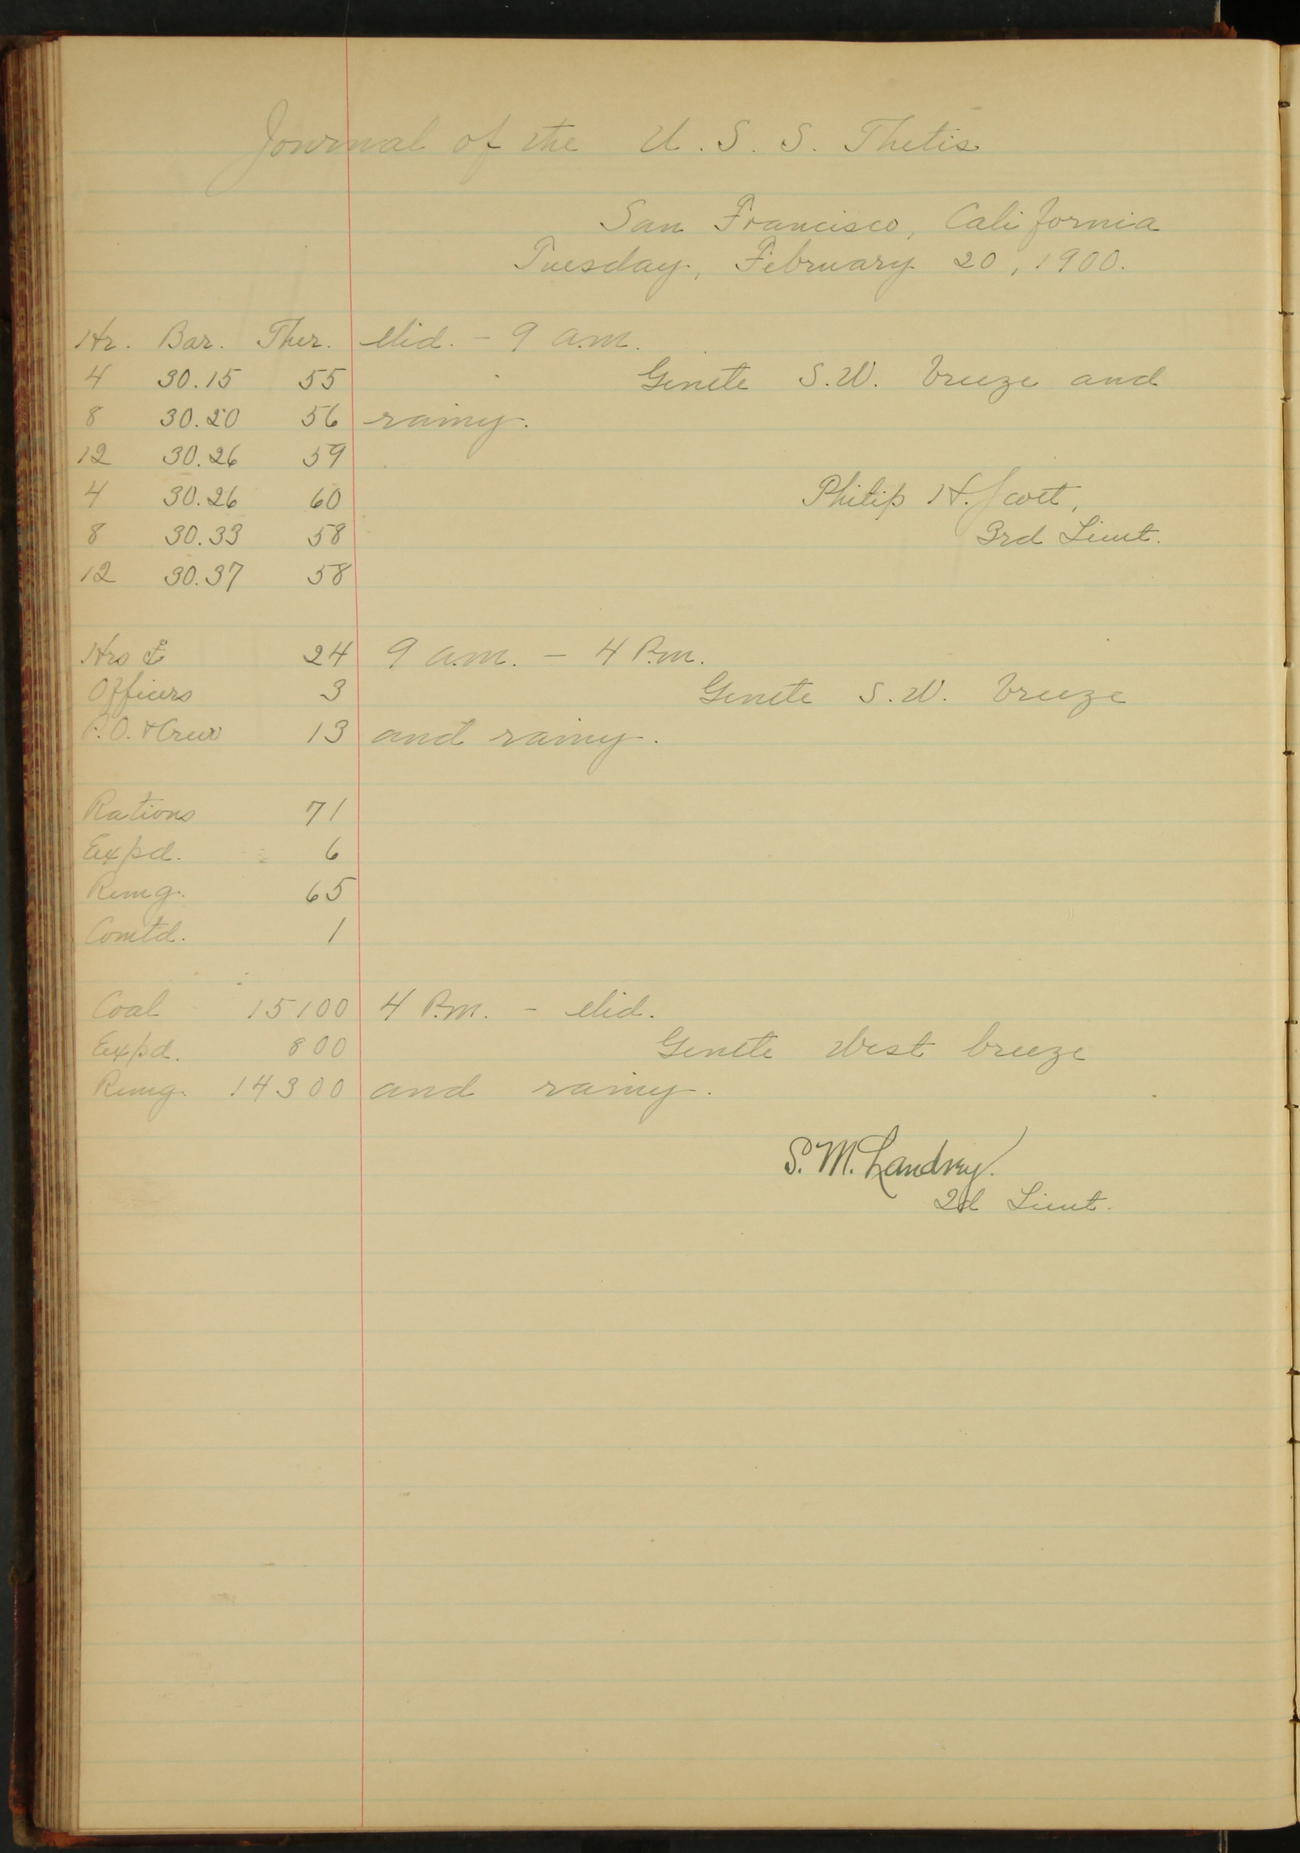 Journal of the U. S. S. Thetis
San Francisco, California
Tuesday, February 20, 1900.
Hr. Bar. Ther. Mid. - 9 a.m.
4 30.15 55 Gentle S.W. breeze and
8 30.20 56 rainy.
12 30.26 59
4 30.26 60 Philip H. Scott,
8 30.33 58 3rd Lieut.
12 30.37 58
Hrs 24 9 a.m. - 4 P.m.
Officers 3 Gentle S.W. breeze
P.O. & Crew 13 and rainy.
Rations 71
Expd. 6
Remg. 65
Comtd. 1
Coal 15100 4 P.m. - Mid.
Expd. 800 Gentle West breeze
Remg. 14300 and rainy.
S. M. Landrey.
2d Lieut.